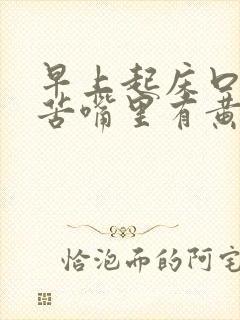 早上起床口
苦嘴里有黄
恰泡而的阿宅